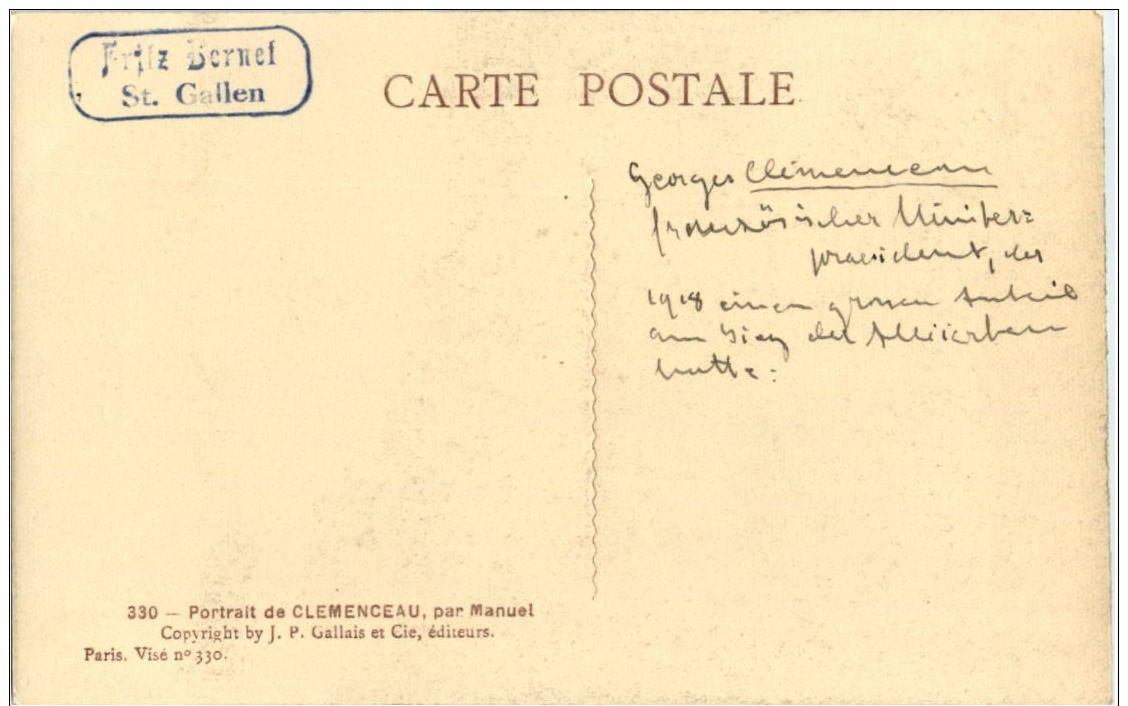 Fritz Bernet
St. Gallen
CARTE POSTALE
Georges Clémenceau
französischer Minister=
praesident, der
1918 einen grossen Anteil
am Sieg der Alliierten
hatte.
330 — Portrait de CLEMENCEAU, par Manuel
Copyright by J. P. Gallais et Cie, éditeurs.
Paris. Visé nº 330.